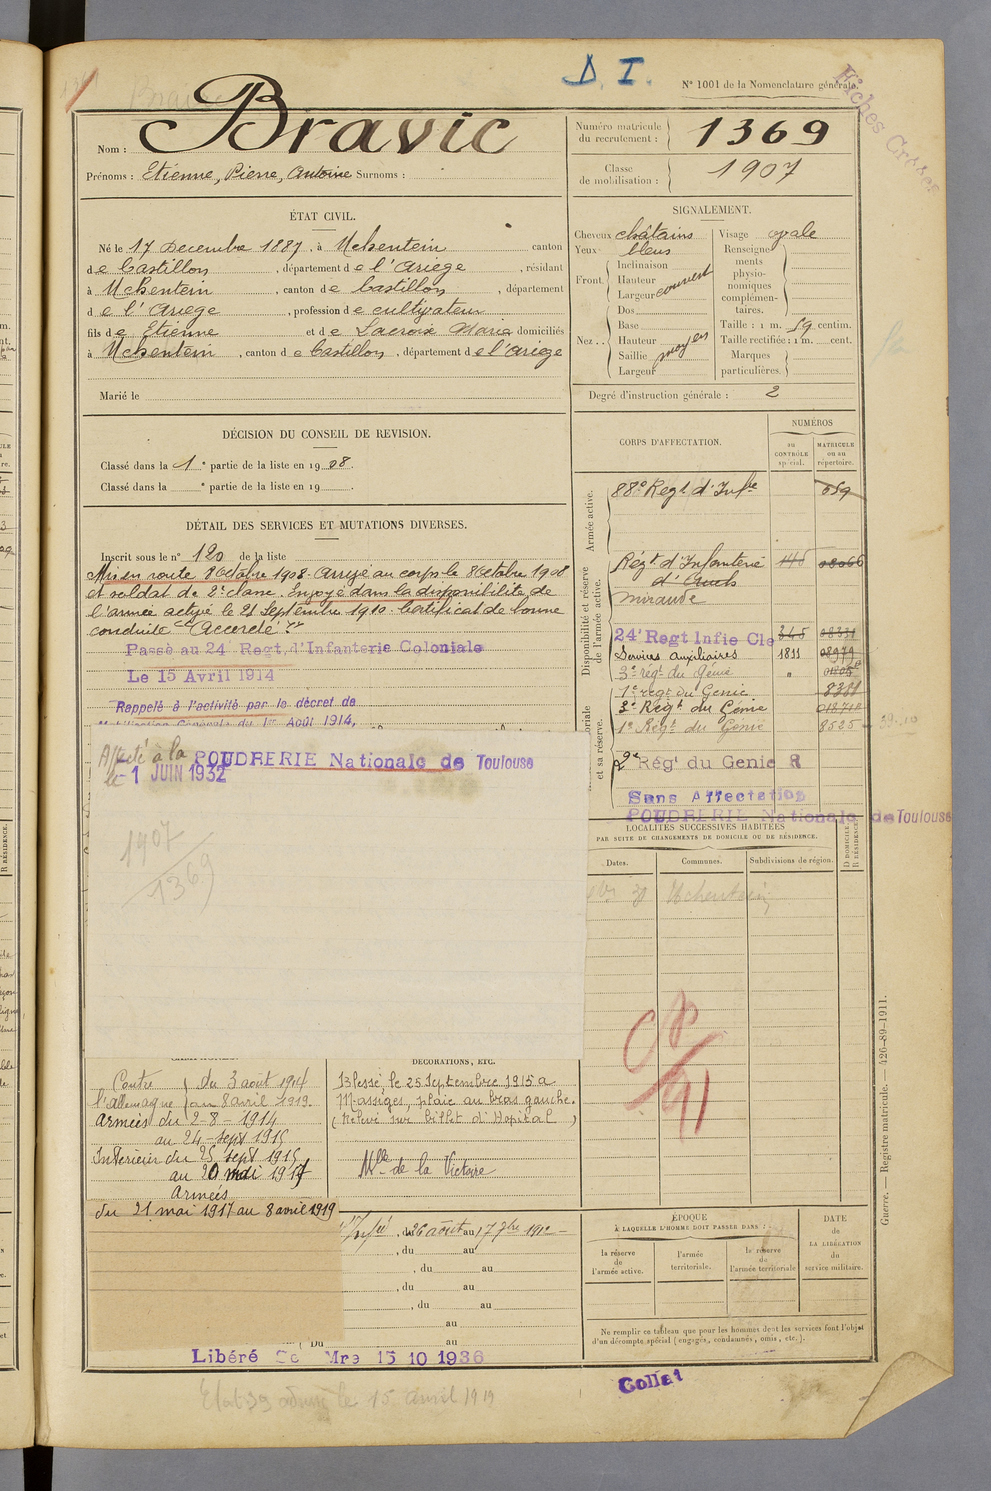 D. I.
N° 1001 de la Nomenclature générale.
Fiches Grises
Nom : Bravic
Prénoms : Etienne, Pierre, Antoine Surnoms :
Numéro matricule du recrutement : 1369
Classe de mobilisation : 1907
ÉTAT CIVIL.
Né le 17 Decembre 1887, à Uchentein canton
de Castillon, département de l'Ariège, résidant
à Uchentein, canton de Castillon, département
de l'Ariege, profession de cultivateur
fils de Etienne et de Lacroix Maria domiciliés
à Uchentein, canton de Castillon, département de l'Ariège
Marié le
SIGNALEMENT.
Cheveux châtains
Yeux bleus
Front Inclinaison Hauteur Largeur couvert
Nez Dos Base Hauteur Saillie Largeur moyen
Visage ovale
Renseignements physionomiques complémentaires.
Taille : 1 m. 59 centim.
Taille rectifiée : 1 m. cent.
Marques particulières.
Degré d'instruction générale : 2
DÉCISION DU CONSEIL DE REVISION.
Classé dans la 1e partie de la liste en 1908.
Classé dans la e partie de la liste en 19
DÉTAIL DES SERVICES ET MUTATIONS DIVERSES.
Inscrit sous le n° 120 de la liste
Mis en route 8 Octobre 1908. Arrivé au corps le 8 Octobre 1908
et soldat de 2e classe. Envoyé dans la disponibilité de
l'armée active le 21 Septembre 1910. Certificat de bonne
conduite "Accordé"
Passé au 24 Regt. d'Infanterie Coloniale
Le 15 Avril 1914
Rappelé à l'activité par le décret de
Mobilisation Générale du 1er Août 1914,
Affecté à la POUDRERIE Nationale de Toulouse
le -1 JUIN 1932
1907
1369
CORPS D'AFFECTATION.
NUMÉROS
au CONTRÔLE spécial.
MATRICULE ou au répertoire.
Armée active.
88e Regt d'Infie 659
Disponibilité et réserve de l'armée active.
Régt d'Infanterie
d'Auch
Mirande
24e Regt Infie Cle 345 08331
Services auxiliaires 1811 08979
3e régt du Génie "
et sa réserve.
1e regt du Genie 8381
2e Régt du Génie
1e Régt du Génie 8525
2e Régt du Genie R
Sans Affectation
POUDRERIE Nationale de Toulouse
LOCALITÉS SUCCESSIVES HABITÉES
PAR SUITE DE CHANGEMENTS DE DOMICILE OU DE RÉSIDENCE.
Dates. Communes. Subdivisions de région. D DOMICILE R RÉSIDENCE.
Uchentein
DÉCORATIONS, ETC.
Contre l'allemagne du 3 août 1914 au 8 avril 1919.
Armées du 2-8-1914
au 24-sept 1915
Intérieur du 25 sept 1915
au 20 mai 1917
Armées
du 21 mai 1917 au 8 avril 1919
Blessé, le 25 Septembre 1915 à
Massiges, plaie au bras gauche.
(Relevé sur billet d'Hopital)
Mlle de la Victoire
du 26 août au 17 7bre 191
, du au
, du au
, du au
, du au
au
Du au
Libéré Mre 15 10 1936
ÉPOQUE
À LAQUELLE L'HOMME DOIT PASSER DANS :
la réserve de l'armée active.
l'armée territoriale.
la réserve de l'armée territoriale
DATE DE LA LIBÉRATION du service militaire.
Ne remplir ce tableau que pour les hommes dont les services font l'objet
d'un décompte spécial (engagés, condamnés, omis, etc.).
Guerre. — Registre matricule. — 426-89-1911.
le 15 avril 1919
Collat